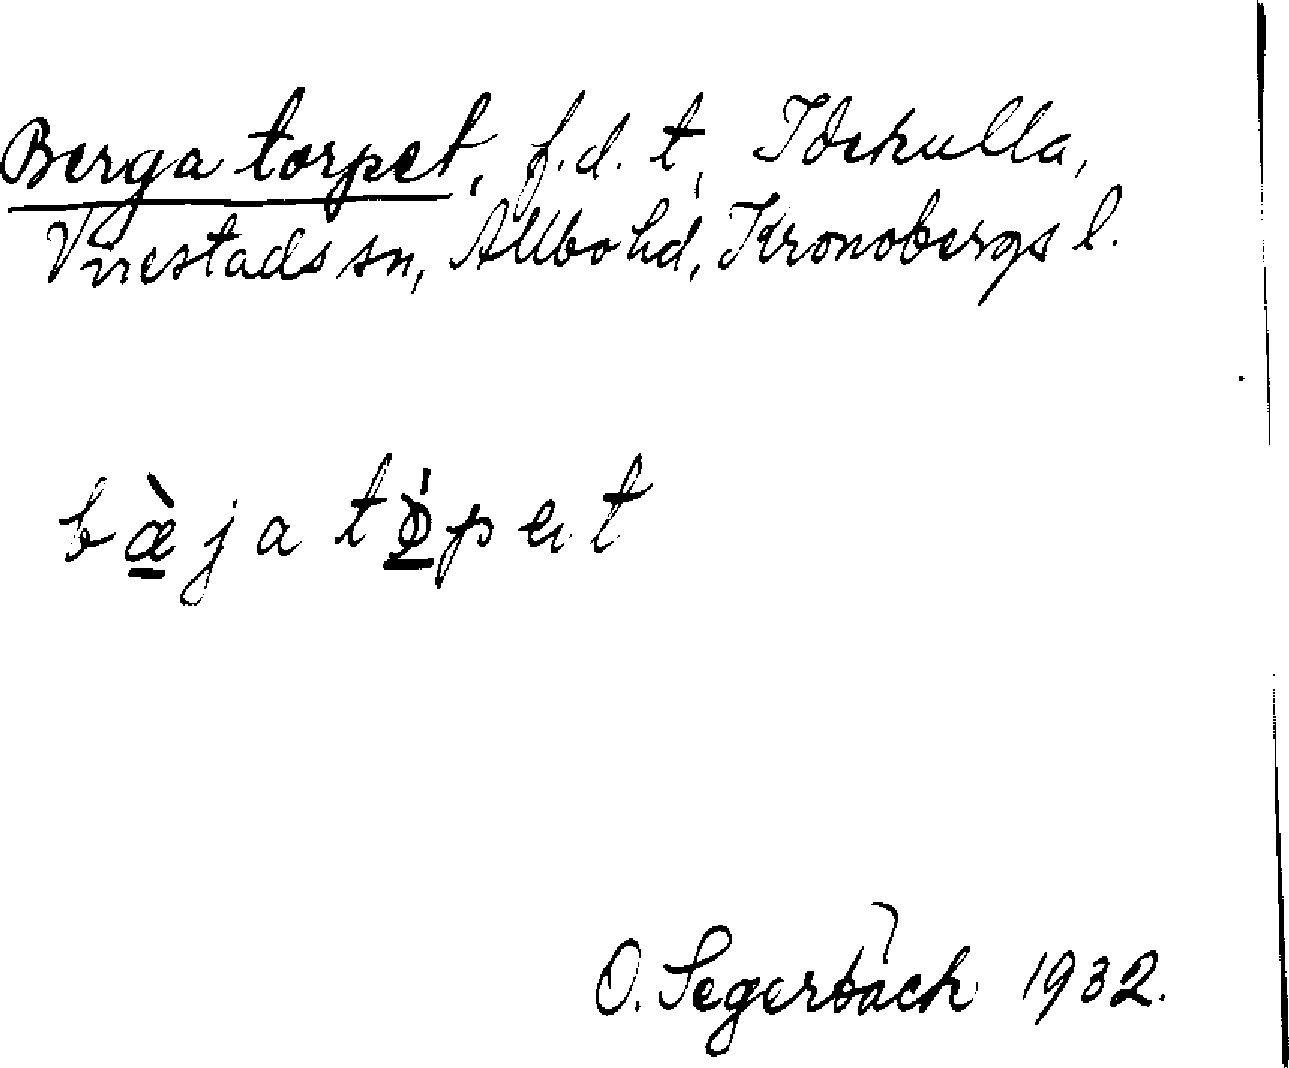 Berga torpet, f.d. t, Idekulla,
Virestads sn, Allbo hd, Kronobergs l.
bæ̀ja tǿpet
O. Segerbäck 1932.